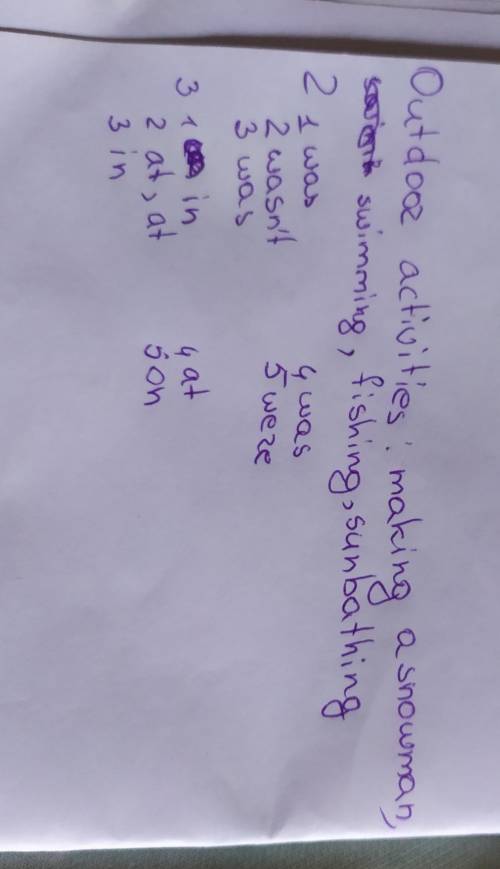 Outdoor activities: making a snowman,
swimming, fishing, sunbathing
2 1 was 4 was
2 wasn't 5 were
3 was
3 1 in 4 at
2 at, at 5 on
3 in